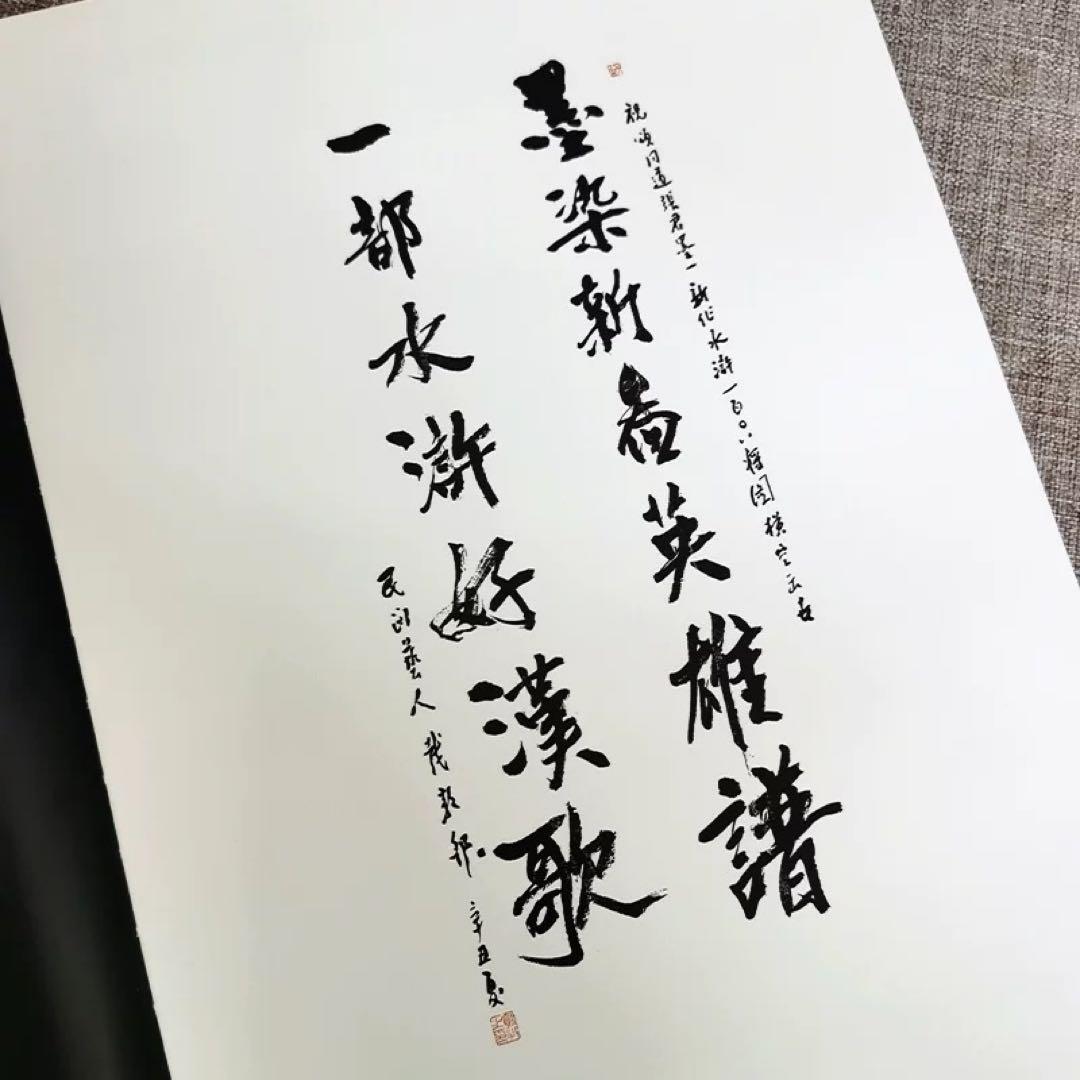 祝頌同道張君墨一新作水滸一百〇八將圖橫空出世
墨染新畫英雄譜
一部水滸好漢歌
民間藝人
辛丑夏